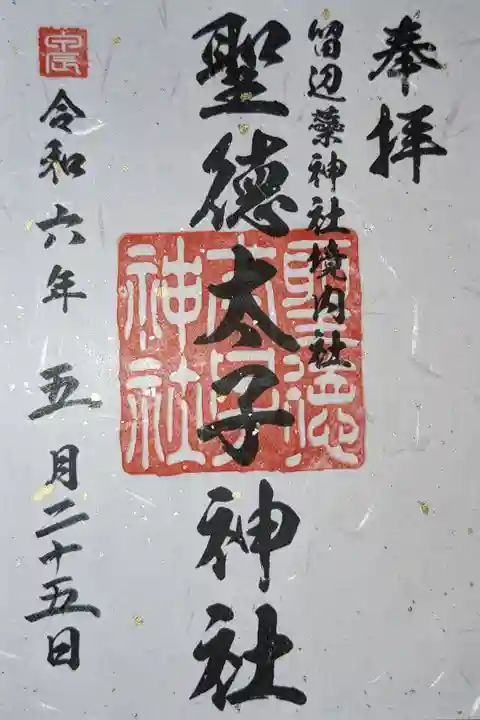 奉拝
留辺蘂神社境内社
聖徳太子神社
聖徳
太子
神社
令和六年五月二十五日